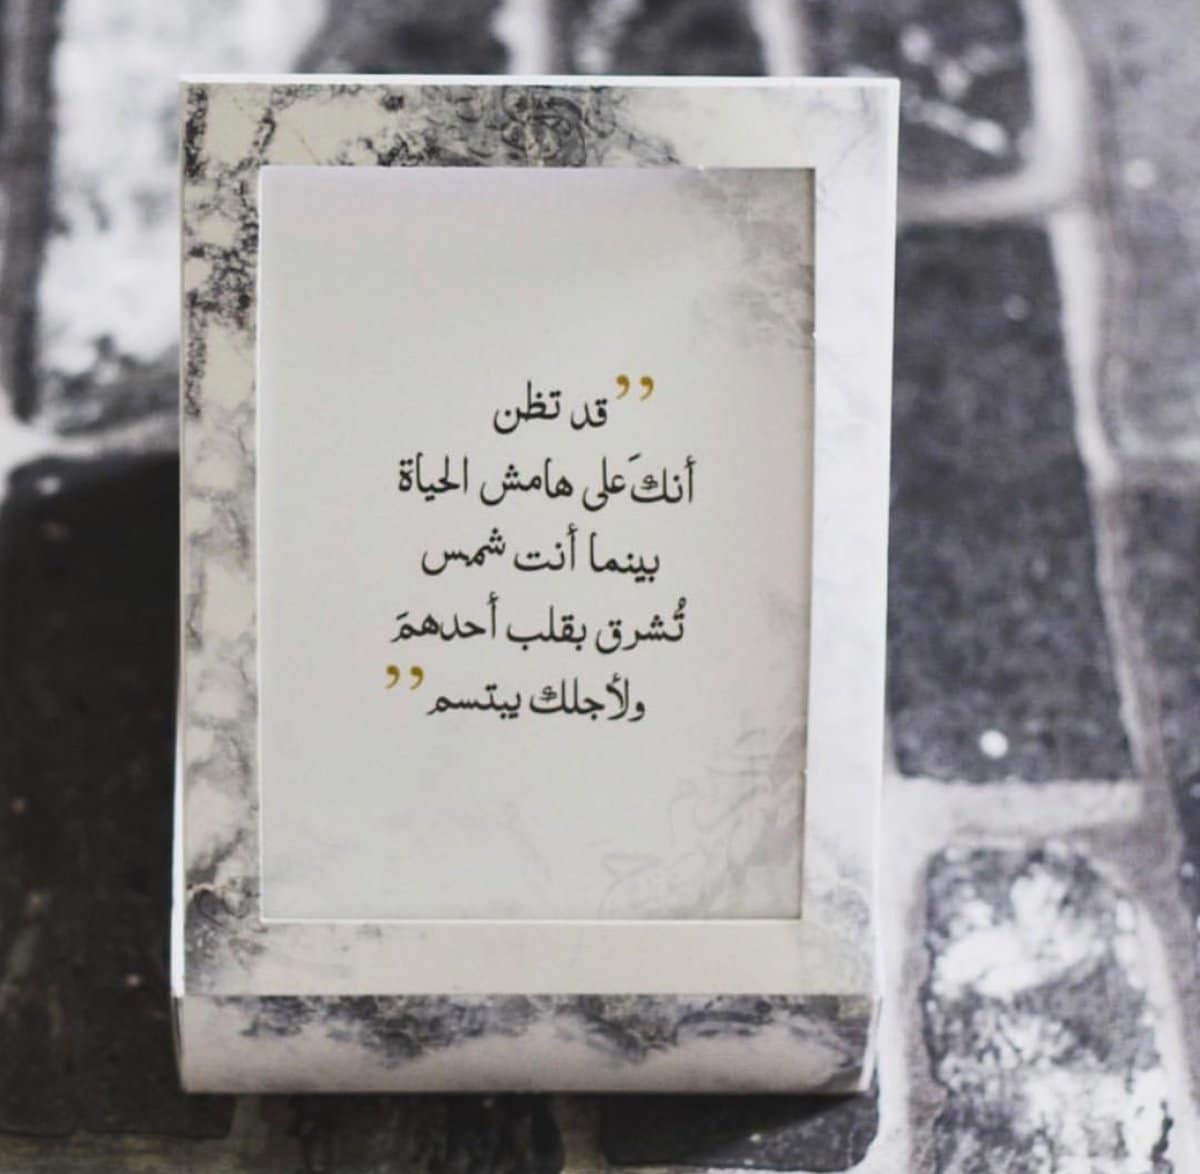 ”قد تظن
أنكَ على هامش الحياة
بينما أنت شمس
تُشرق بقلب أحدهمَ
ولأجلك يبتسم”